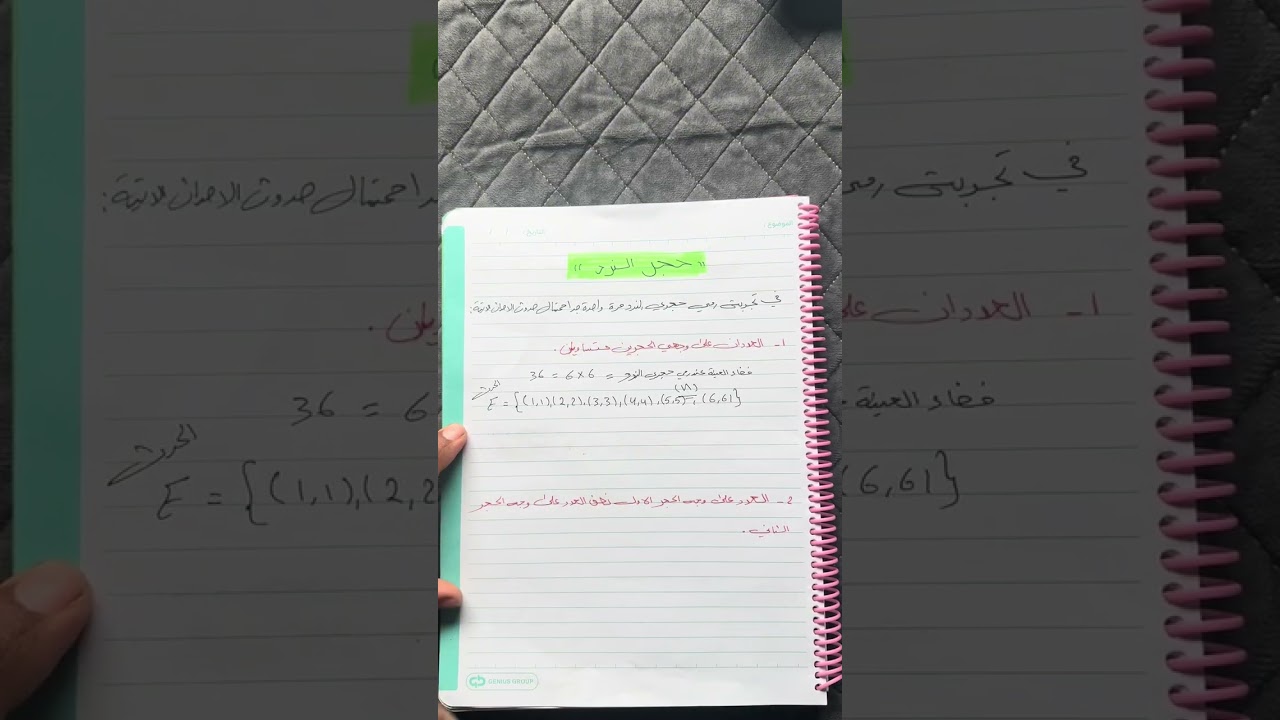 الموضوع: التاريخ: / /
"حجر النرد"
في تجربة رمي حجري النرد مرة واحدة جد احتمال حدوث الاحداث الاتية:
1- العددان على وجهي الحجرين متساويان.
فضاء العينة عند رمي حجري النرد = 6×6 = 36
الحدث
E = {(1,1),(2,2),(3,3),(4,4),(5,5),(6,6)}
2- العدد على وجه الحجر الاول نصف العدد على وجه الحجر
الثاني.
GENIUS GROUP